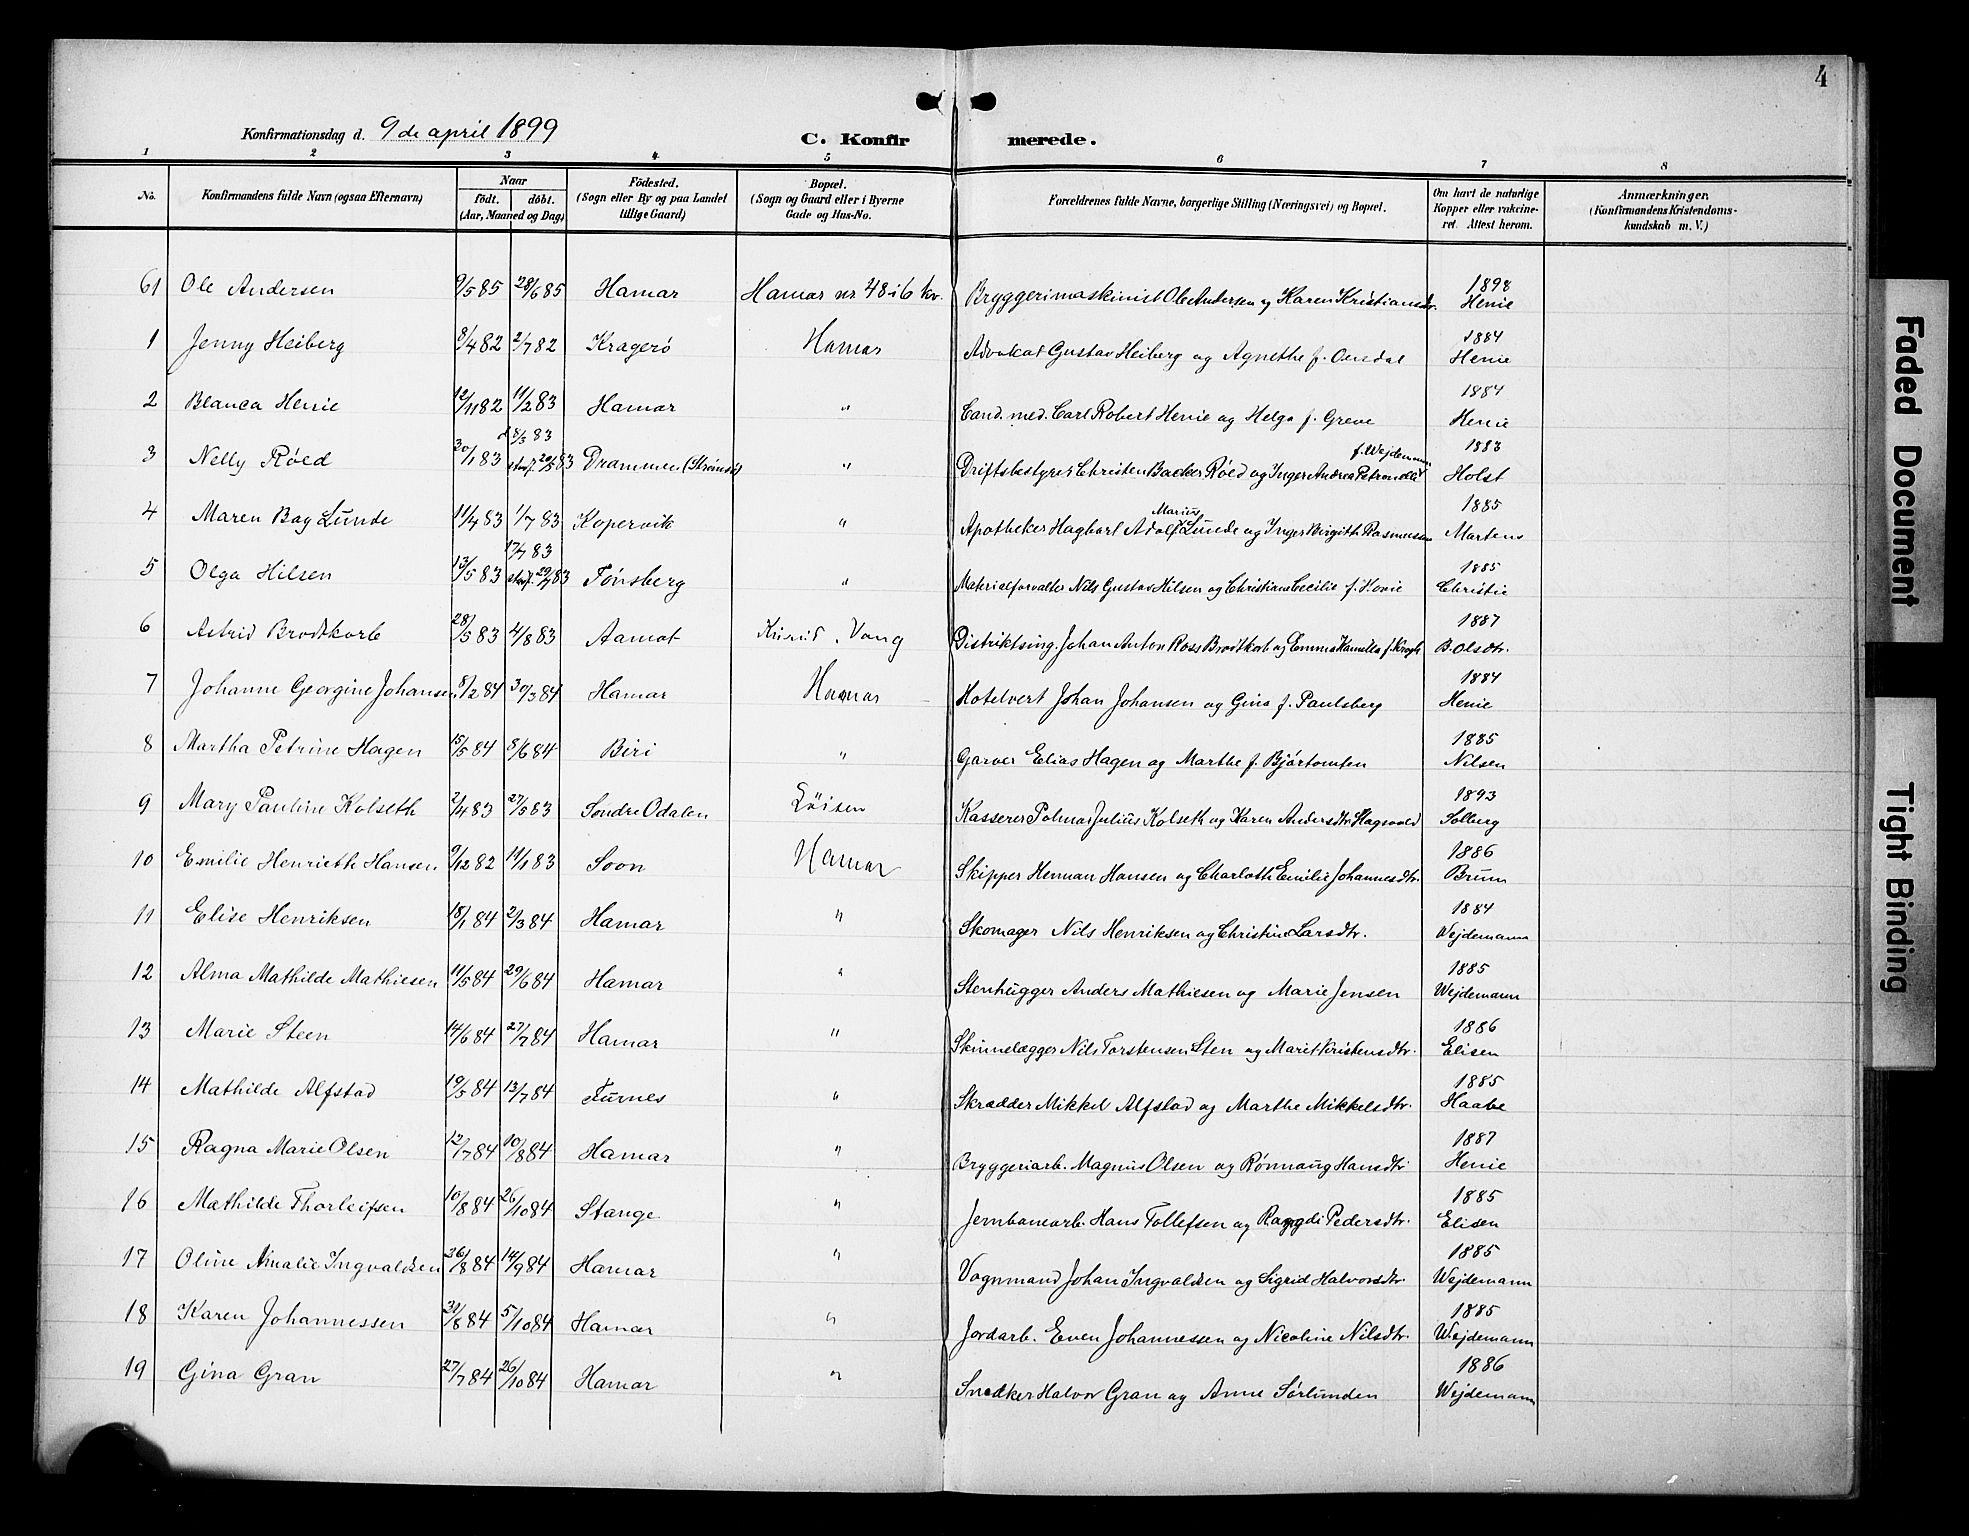 4
Konfirmationsdag d. 9de april 1899
C. Konfirmerede.
1 2 3 4 5 6 7 8
No. Konfirmandens fulde Navn (ogsaa Efternavn) Naar födt. döbt. (Aar, Maaned og Dag) Födested. (Sogn eller By og paa Landet tillige Gaard) Bopæl. (Sogn og Gaard eller i Byerne Gade og Hus-No. Forældrenes fulde Navne, borgerlige Stilling (Næringsvei) og Bopæl. Om havt de naturlige Kopper eller vakcineret. Attest herom. Anmærkninger. (Konfirmandens Kristendomskundskab m. V.)
61 Ole Andersen 9/5 85 28/6 85 Hamar Hamar nr 48 i 6 kv. Bryggerimaskinist Ole Andersen og Karen Kristiansdr. 1898 Henie
1 Jenny Heiberg 8/4 82 2/7 82 Kragerö Hamar Advokat Gustav Heiberg og Agnethe f. 1884 Henie
2 Blanca Henie 12/11 82 11/2 83 Hamar " Cand. med. Carl Robert Henie og Helga f. Greve 1884 Henie
3 Nelly Röed 20/1 83 8/3 83 20/5 83 Drammen (Strømsö) " Driftsbestyrer Christen Backer Röed og Inger Andrea Petronella f. Wejdemann 1883 Holst
4 Maren Bay Lunde 11/4 83 1/7 83 Kopervik " Apotheker Hagbart Adolf Marius Lunde og Inger Birgitte Rasmussen 1885 Martens
5 Olga Hilsen 13/5 83 17/7 83 29/7 83 Tönsberg " Materialforvalter Nils Gustav Hilsen og Christiane Cecilie f. Hovie 1885 Christie
6 Astrid Brodtkorb 28/5 83 4/8 83 Aamot Vang Distriktsing. Johan Anton Ross Brodtkorb og Emma Kamilla f. Krogh 1887 B. Olsdtr.
7 Johanne Georgine Johansen 8/2 84 30/3 84 Hamar Hamar Hotelvert Johan Johansen og Gina f. Paulsberg 1884 Henie
8 Martha Petrine Hagen 15/5 84 8/6 84 Biri " Garver Elias Hagen og Marthe f. Bjørtomten 1885 Nilsen
9 Mary Pauline Kolseth 2/4 83 27/5 83 Söndre Odalen Löiten Kasserer Polmar Julius Kolseth og Karen Andersdtr Hagevold 1893 Solberg
10 Emilie Henriette Hansen 9/12 82 11/1 83 Soon Hamar Skipper Herman Hansen og Charlotte Emilie Johannesdtr. 1886 Bruun
11 Elise Henriksen 18/1 84 2/3 84 Hamar " Skomager Nils Henriksen og Christine Larsdtr. 1884 Wejdemann
12 Alma Mathilde Mathiesen 11/5 84 29/6 84 Hamar " Stenhugger Anders Mathiesen og Marie Jensen 1885 Wejdemann
13 Marie Steen 14/6 84 27/7 84 Hamar " Skinnelægger Nils Torstensen Sten og Marit Kristensdtr. 1886 Elisen
14 Mathilde Alfstad 19/5 84 13/7 84 Furnes " Skrædder Mikkel Alfstad og Marthe Mikkelsdtr. 1885 Haabe
15 Ragna Marie Olsen 12/7 84 10/8 84 Hamar " Bryggeriarb. Magnus Olsen og Rønnaug Hansdtr 1887 Henie
16 Mathilde Thorleifsen 10/8 84 26/10 84 Stange " Jernbanearb. Hans Tollefsen og Ragndi Pedersdtr. 1885 Elisen
17 Oline Amalie Ingvaldsen 26/8 84 14/9 84 Hamar " Vognmand Johan Ingvaldsen og Sigrid Halvorsdtr. 1885 Wejdemann
18 Karen Johannessen 31/8 84 5/10 84 Hamar " Jordarb. Even Johannessen og Nicoline Nilsdtr. 1885 Wejdemann
19 Gina Gran 27/7 84 26/10 84 Hamar " Snedker Halvor Gran og Anne Sørlunden 1886 Wejdemann
Faded Document
Tight Binding